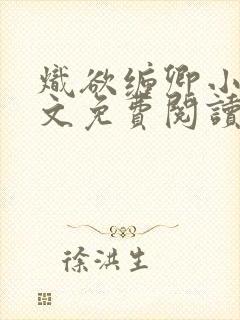 熾欲缅卿小
文免費閱讀
徐洪生